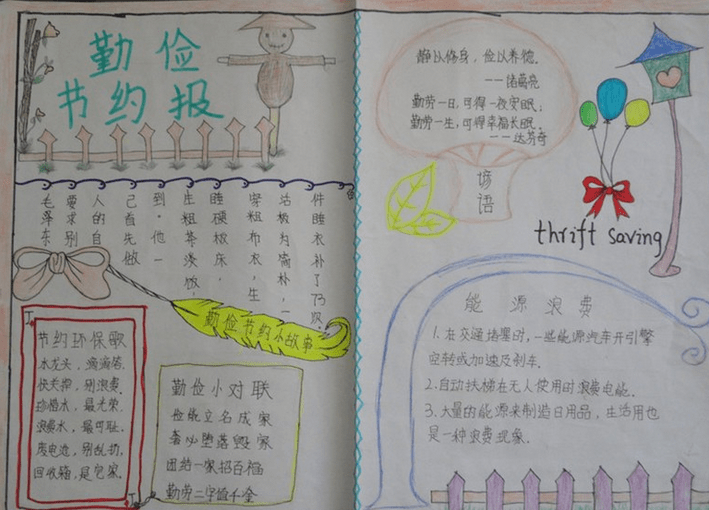 勤俭
节约报
毛泽东
要求别
人的自
己首先做
到。他一
生粗茶淡饭,
睡硬板床,
穿粗布衣,生
活极为简朴,一
件睡衣补了73次。
勤俭节约小故事
节约环保歌
水龙头,滴滴答。
快关押,别浪费。
珍惜水,最光荣。
浪费水,最可耻。
废电池,别乱扔。
回收箱,是它家。
勤俭小对联
俭能立名成家
奢必堕落毁家
团结一家招百福
勤劳二字值千金
静以修身,俭以养德。
——诸葛亮
勤劳一日,可得一夜安眠;
勤劳一生,可得幸福长眠。
——达芬奇
谚语
thrift saving
能源浪费
1.在交通堵塞时,一些能源汽车开引擎
空转或加速及刹车.
2.自动扶梯在无人使用时浪费电能.
3.大量的能源来制造日用品,生活用也
是一种浪费现象.